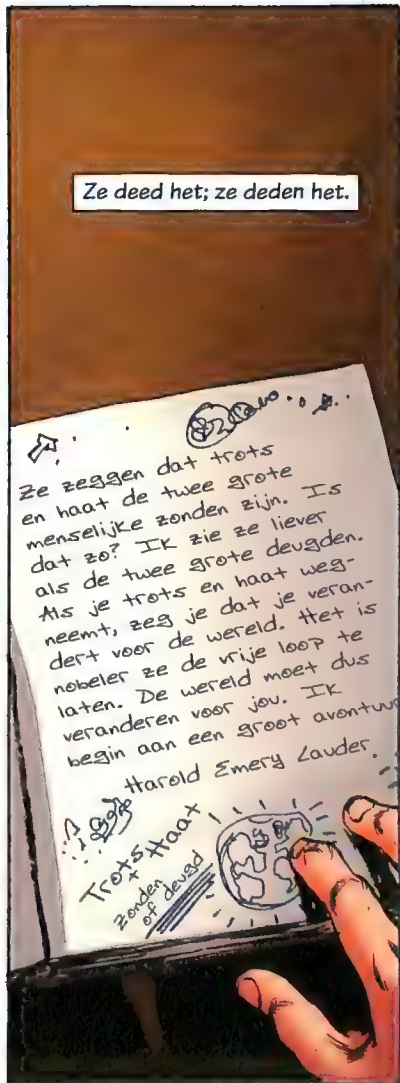 Ze deed het; ze deden het.
Ze zeggen dat trots
en haat de twee grote
menselijke zonden zijn. Is
dat zo? Ik zie ze liever
als de twee grote deugden.
Als je trots en haat weg-
neemt, zeg je dat je veran-
dert voor de wereld. Het is
nobeler ze de vrije loop te
laten. De wereld moet dus
veranderen voor jou. Ik
begin aan een groot avontuur
Harold Emery Lauder.
Trots + Haat
zonden
of deugd